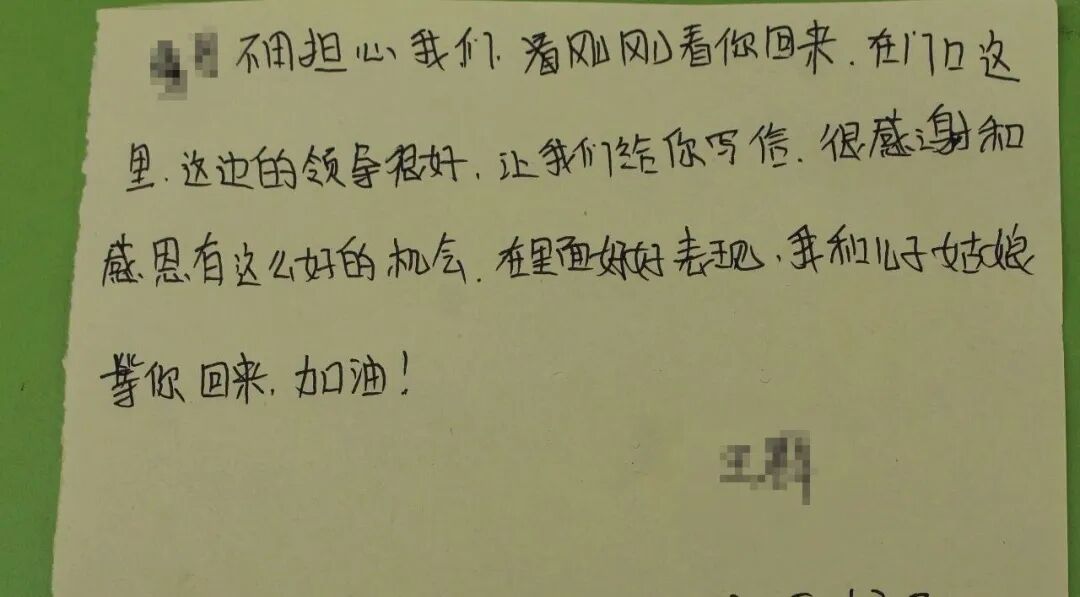 不用担心我们.看刚刚看你回来.在门口这
里.这边的领导很好,让我们给你写信.很感谢和
感恩有这么好的机会.在里面好好表现,我和儿子姑娘
等你回来,加油!